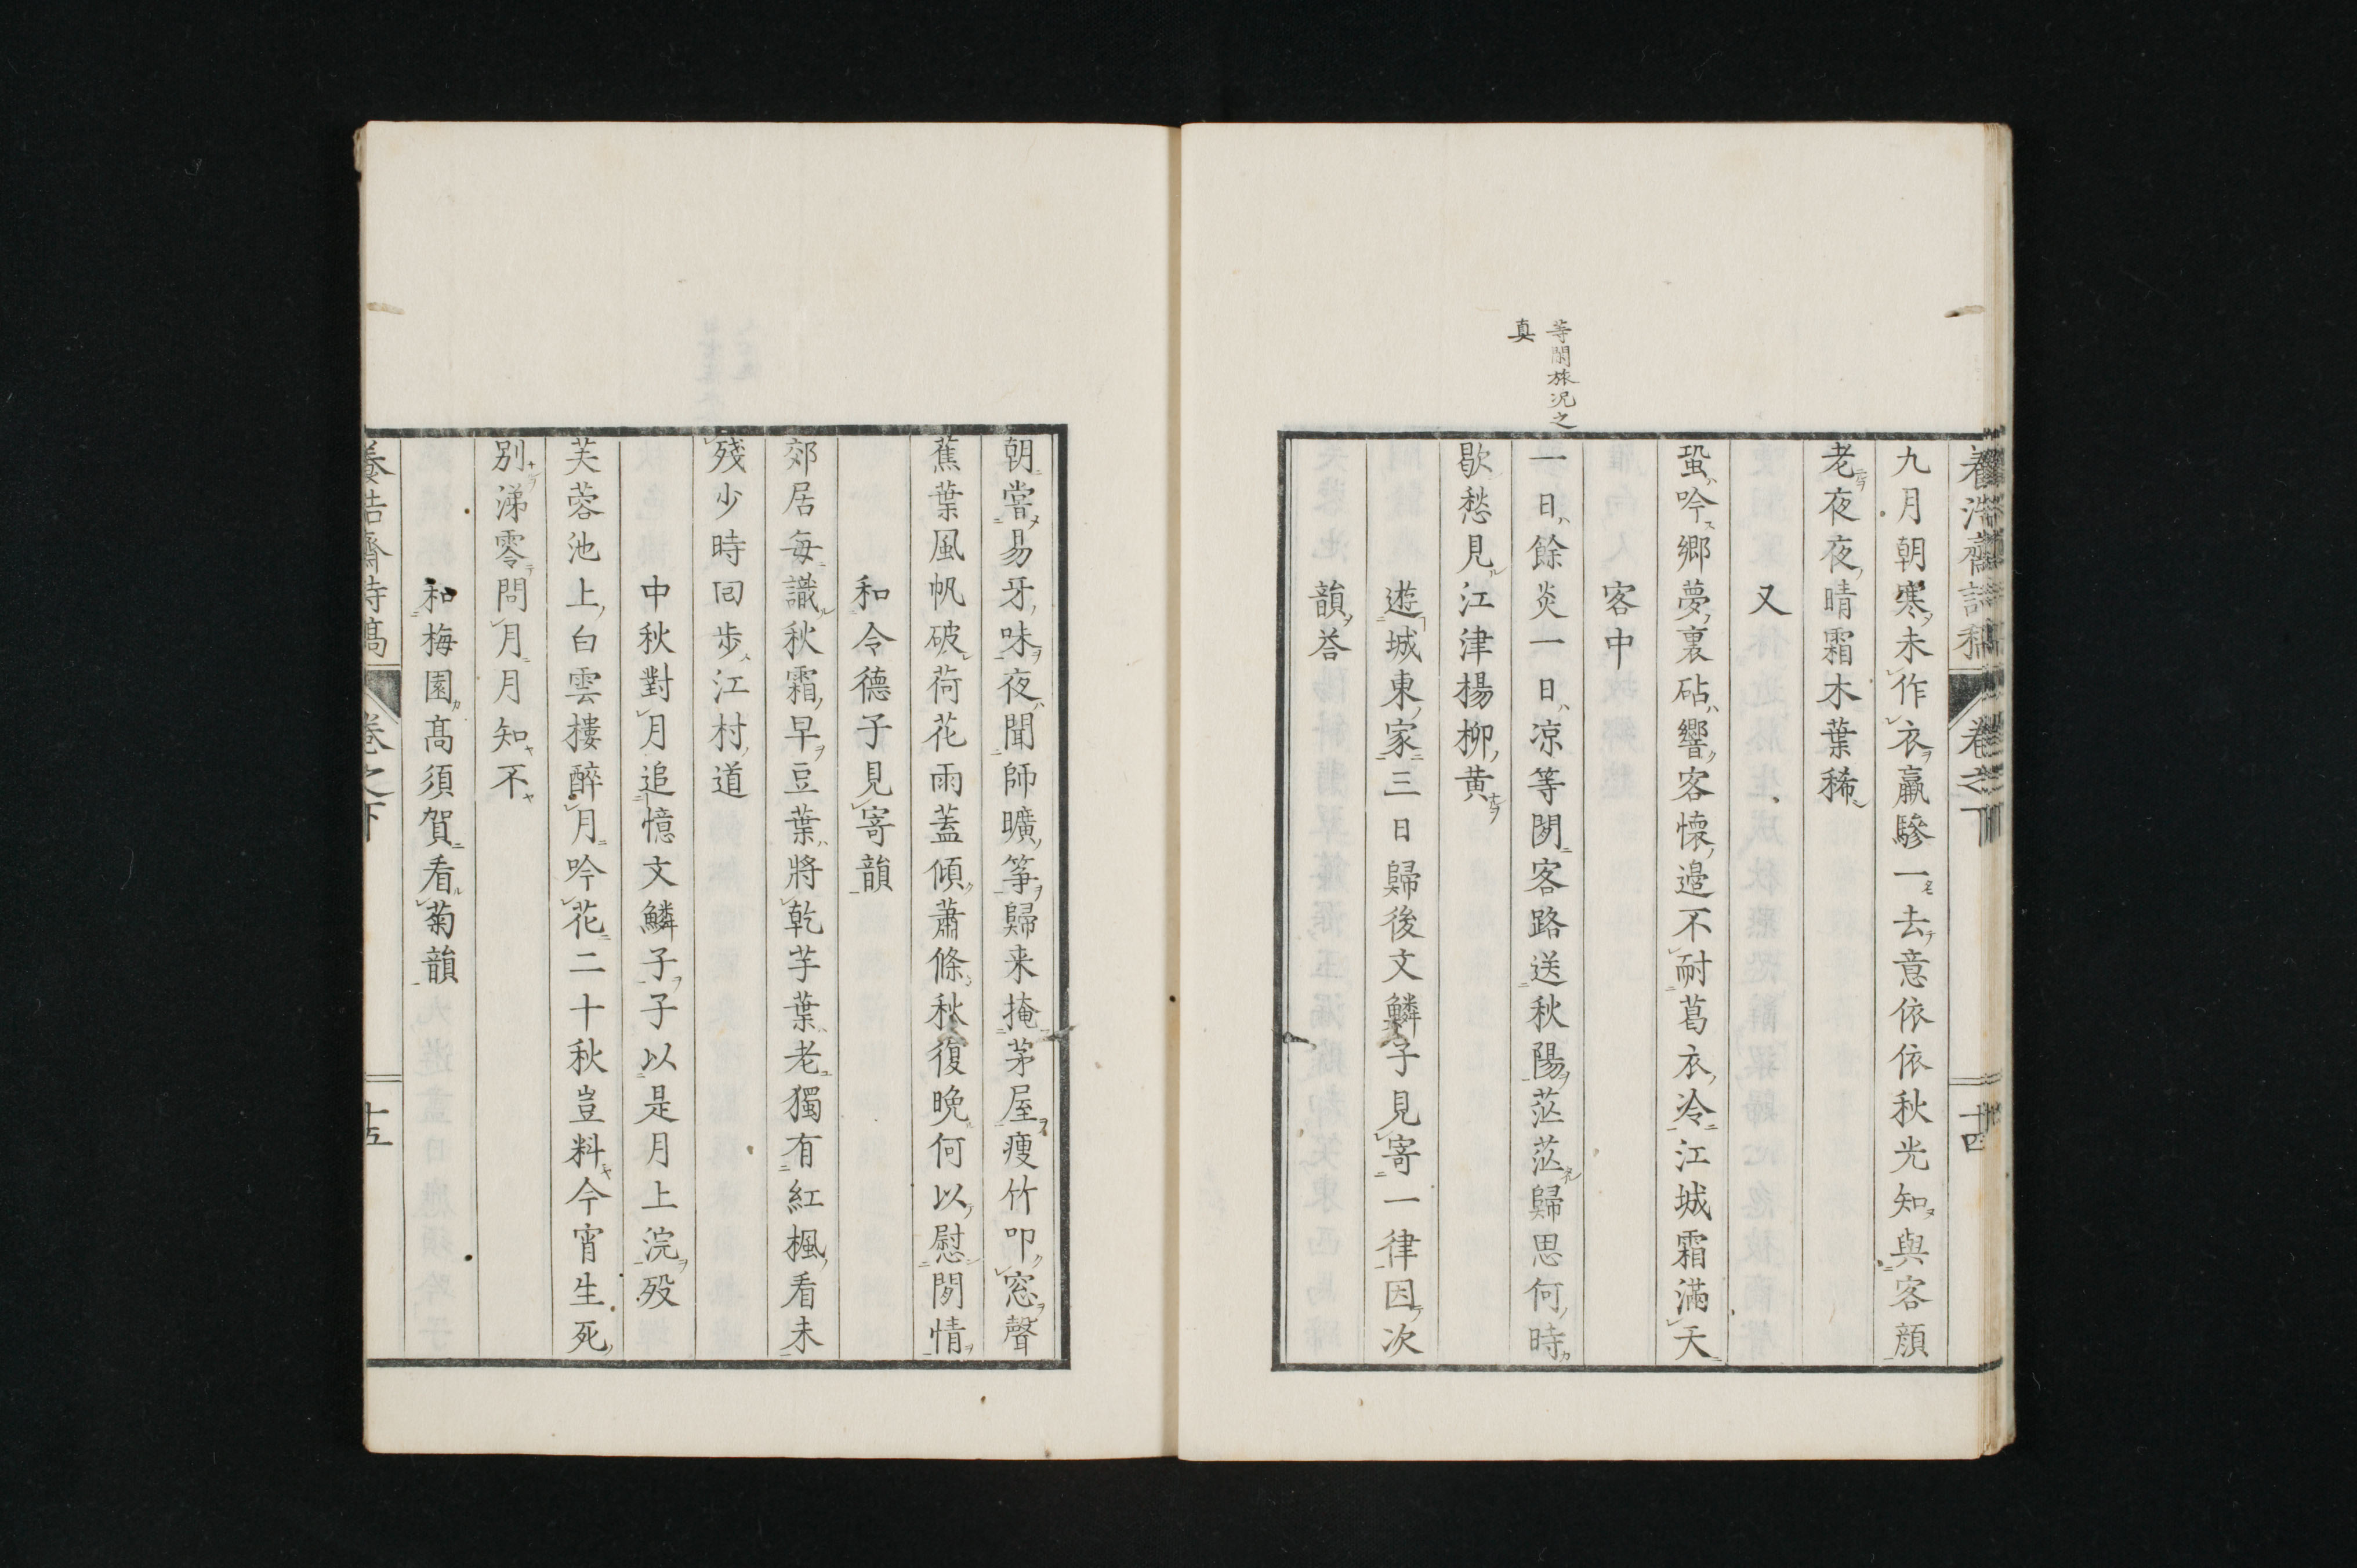 養浩齋詩稿　卷之下　十四
九月朝寒未作衣羸驂一去意依依秋光知與客顔
老夜夜晴霜木葉稀
又
蛩吟鄉夢裏砧響客懷邊不耐葛衣冷江城霜滿天
客中
等閑旅況之
真
一日餘炎一日凉等閑客路送秋陽茫茫歸思何時
歇愁見江津楊柳黄
遊城東家三日歸後文鱗子見寄一律因次
韻荅
朝嘗易牙味夜聞師曠筝歸来掩茅屋瘦竹叩窓聲
蕉葉風帆破荷花雨蓋傾蕭條秋復晩何以慰閒情
和令德子見寄韻
郊居每識秋霜早豆葉將乾芋葉老獨有紅楓看未
殘少時回歩江村道
中秋對月追憶文鱗子子以是月上浣歿
芙蓉池上白雲樓醉月吟花二十秋豈料今宵生死
别涕零問月月知不
和梅園髙須賀看菊韻
養浩齋詩稿　卷之下　十五